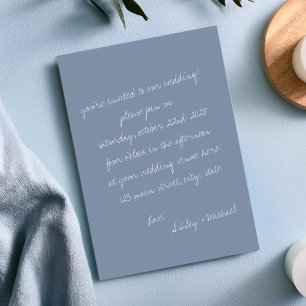 you're invited to our wedding!
please join us
saturday, october 22nd 2028
four o'clock in the afternoon
at your wedding venue here
123 main street, city, state
love,
Ashley + Michael